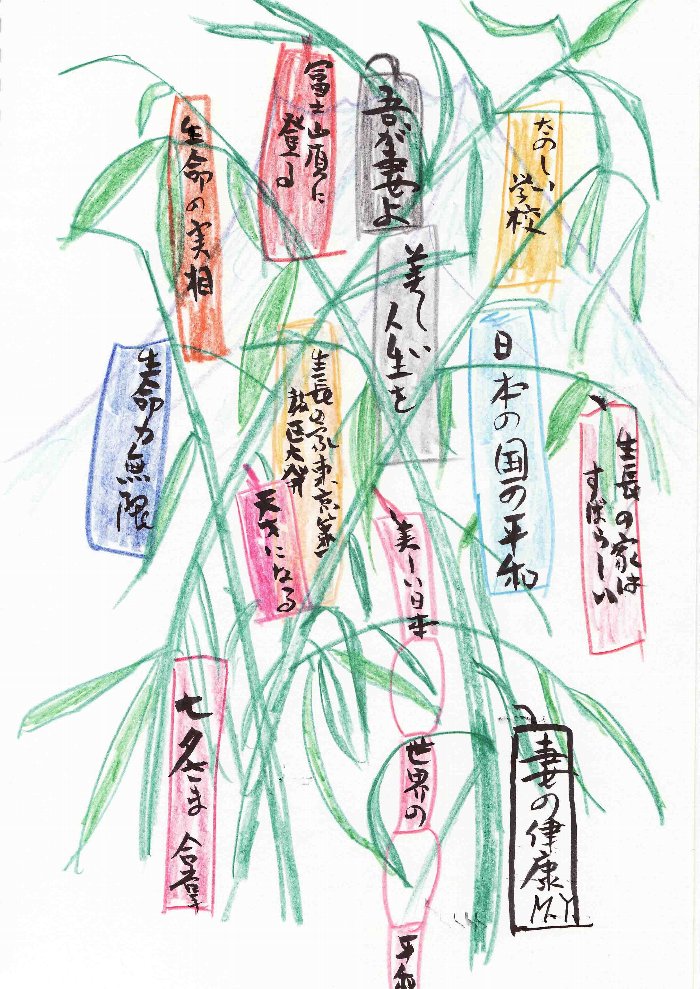 たのしい
学校
吾が妻よ
美し
人生を
富士山頂に
登る
生命の実相
生長の家は
すばらしい
日本の国の平和
生長の家東京第一
教区大発
生命力無限
天才になる
美しい日本
世界の
平和
妻の健康
M.Y
七夕さま